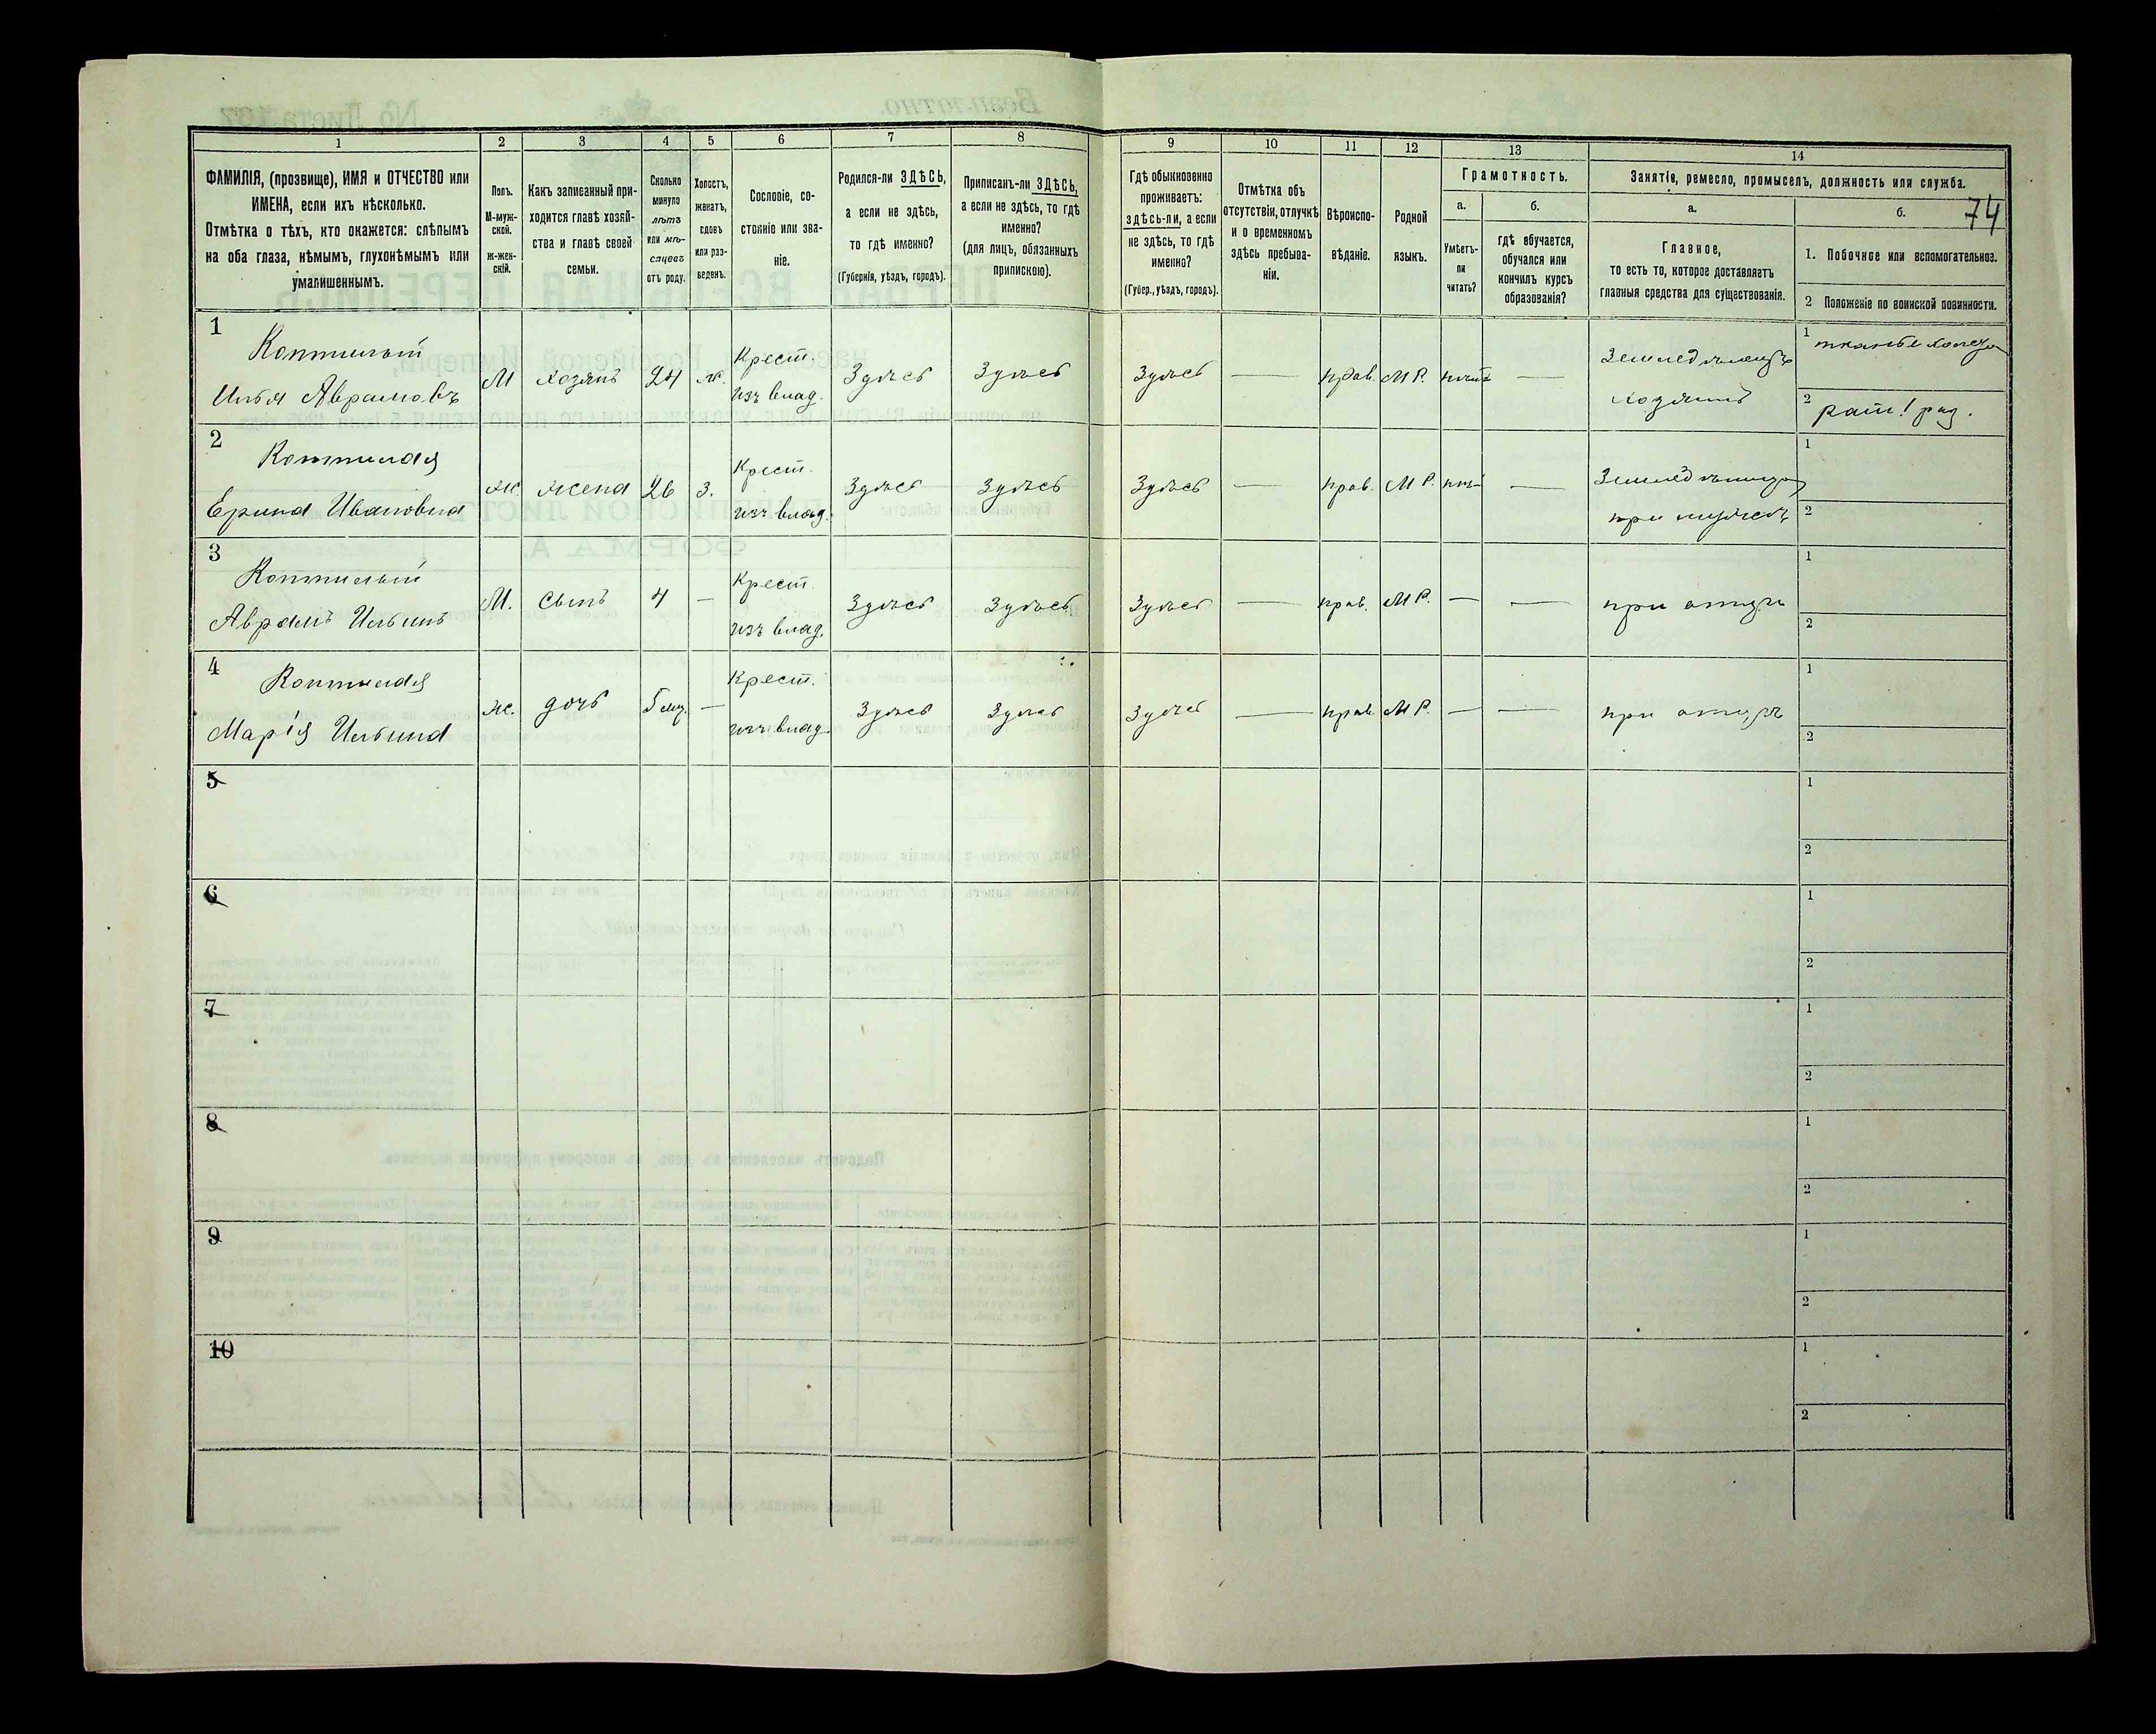 74
1
ФАМИЛІЯ, (прозвище), ИМЯ и ОТЧЕСТВО или
ИМЕНА, если ихъ нѣсколько.
Отмѣтка о тѣхъ, кто окажется: слѣпымъ
на оба глаза, нѣмымъ, глухонѣмымъ или
умалишеннымъ.
2
Полъ.
М-муж-
ской.
ж-жен-
скій.
3
Какъ записанный при-
ходится главѣ хозяй-
ства и главѣ своей
семьи.
4
Сколько
минуло
лѣтъ
или мѣ-
сяцевъ
отъ роду.
5
Холостъ,
женатъ,
вдовъ
или раз-
веденъ.
6
Сословіе, со-
стояніе или зва-
ніе.
7
Родился-ли ЗДѢСЬ,
а если не здѣсь,
то гдѣ именно?
(Губернія, уѣздъ, городъ).
8
Приписанъ-ли ЗДѢСЬ,
а если не здѣсь, то гдѣ
именно?
(для лицъ, обязанныхъ
припискою).
9
Гдѣ обыкновенно
проживаетъ:
здѣсь-ли, а если
не здѣсь, то гдѣ
именно?
(Губер., уѣздъ, городъ).
10
Отмѣтка объ
отсутствіи, отлучкѣ
и о временномъ
здѣсь пребыва-
ніи.
11
Вѣроиспо-
вѣданіе.
12
Родной
языкъ.
13
Грамотность.
а.
Умѣетъ-
ли
читать?
б.
гдѣ обучается,
обучался или
кончилъ курсъ
образованія?
14
Занятіе, ремесло, промыселъ, должность или служба.
а.
Главное,
то есть то, которое доставляетъ
главныя средства для существованія.
б.
1. Побочное или вспомогательное.
2 Положеніе по воинской повинности.
1
Илья Аврамовъ
М хозяинъ 24 ж.
Крест.
изъ влад.
Здѣсь Здѣсь Здѣсь — прав. М Р. —
Земледѣлецъ
хозяинъ
1
2
2
Ерина Ивановна
ж. жена 26 з.
Крест.
изъ влад.
Здѣсь Здѣсь Здѣсь — прав. М Р. —
при мужѣ
1
2
3
Аврамъ Ильинъ
М. сынъ 4 —
Крест.
изъ влад.
Здѣсь Здѣсь Здѣсь — прав. М Р. — —
при отцѣ
1
2
4
Марія Ильина
ж. дочь 5 мѣс. —
Крест.
изъ влад.
Здѣсь Здѣсь Здѣсь — прав М Р. — —
при отцѣ
1
2
5
1
2
6
1
2
7
1
2
8
1
2
9
1
2
10
1
2